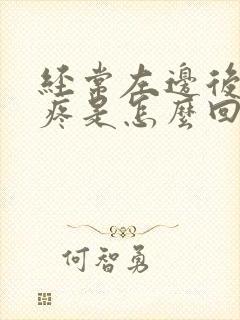 經常左邊後
疼是怎麼回
何智勇